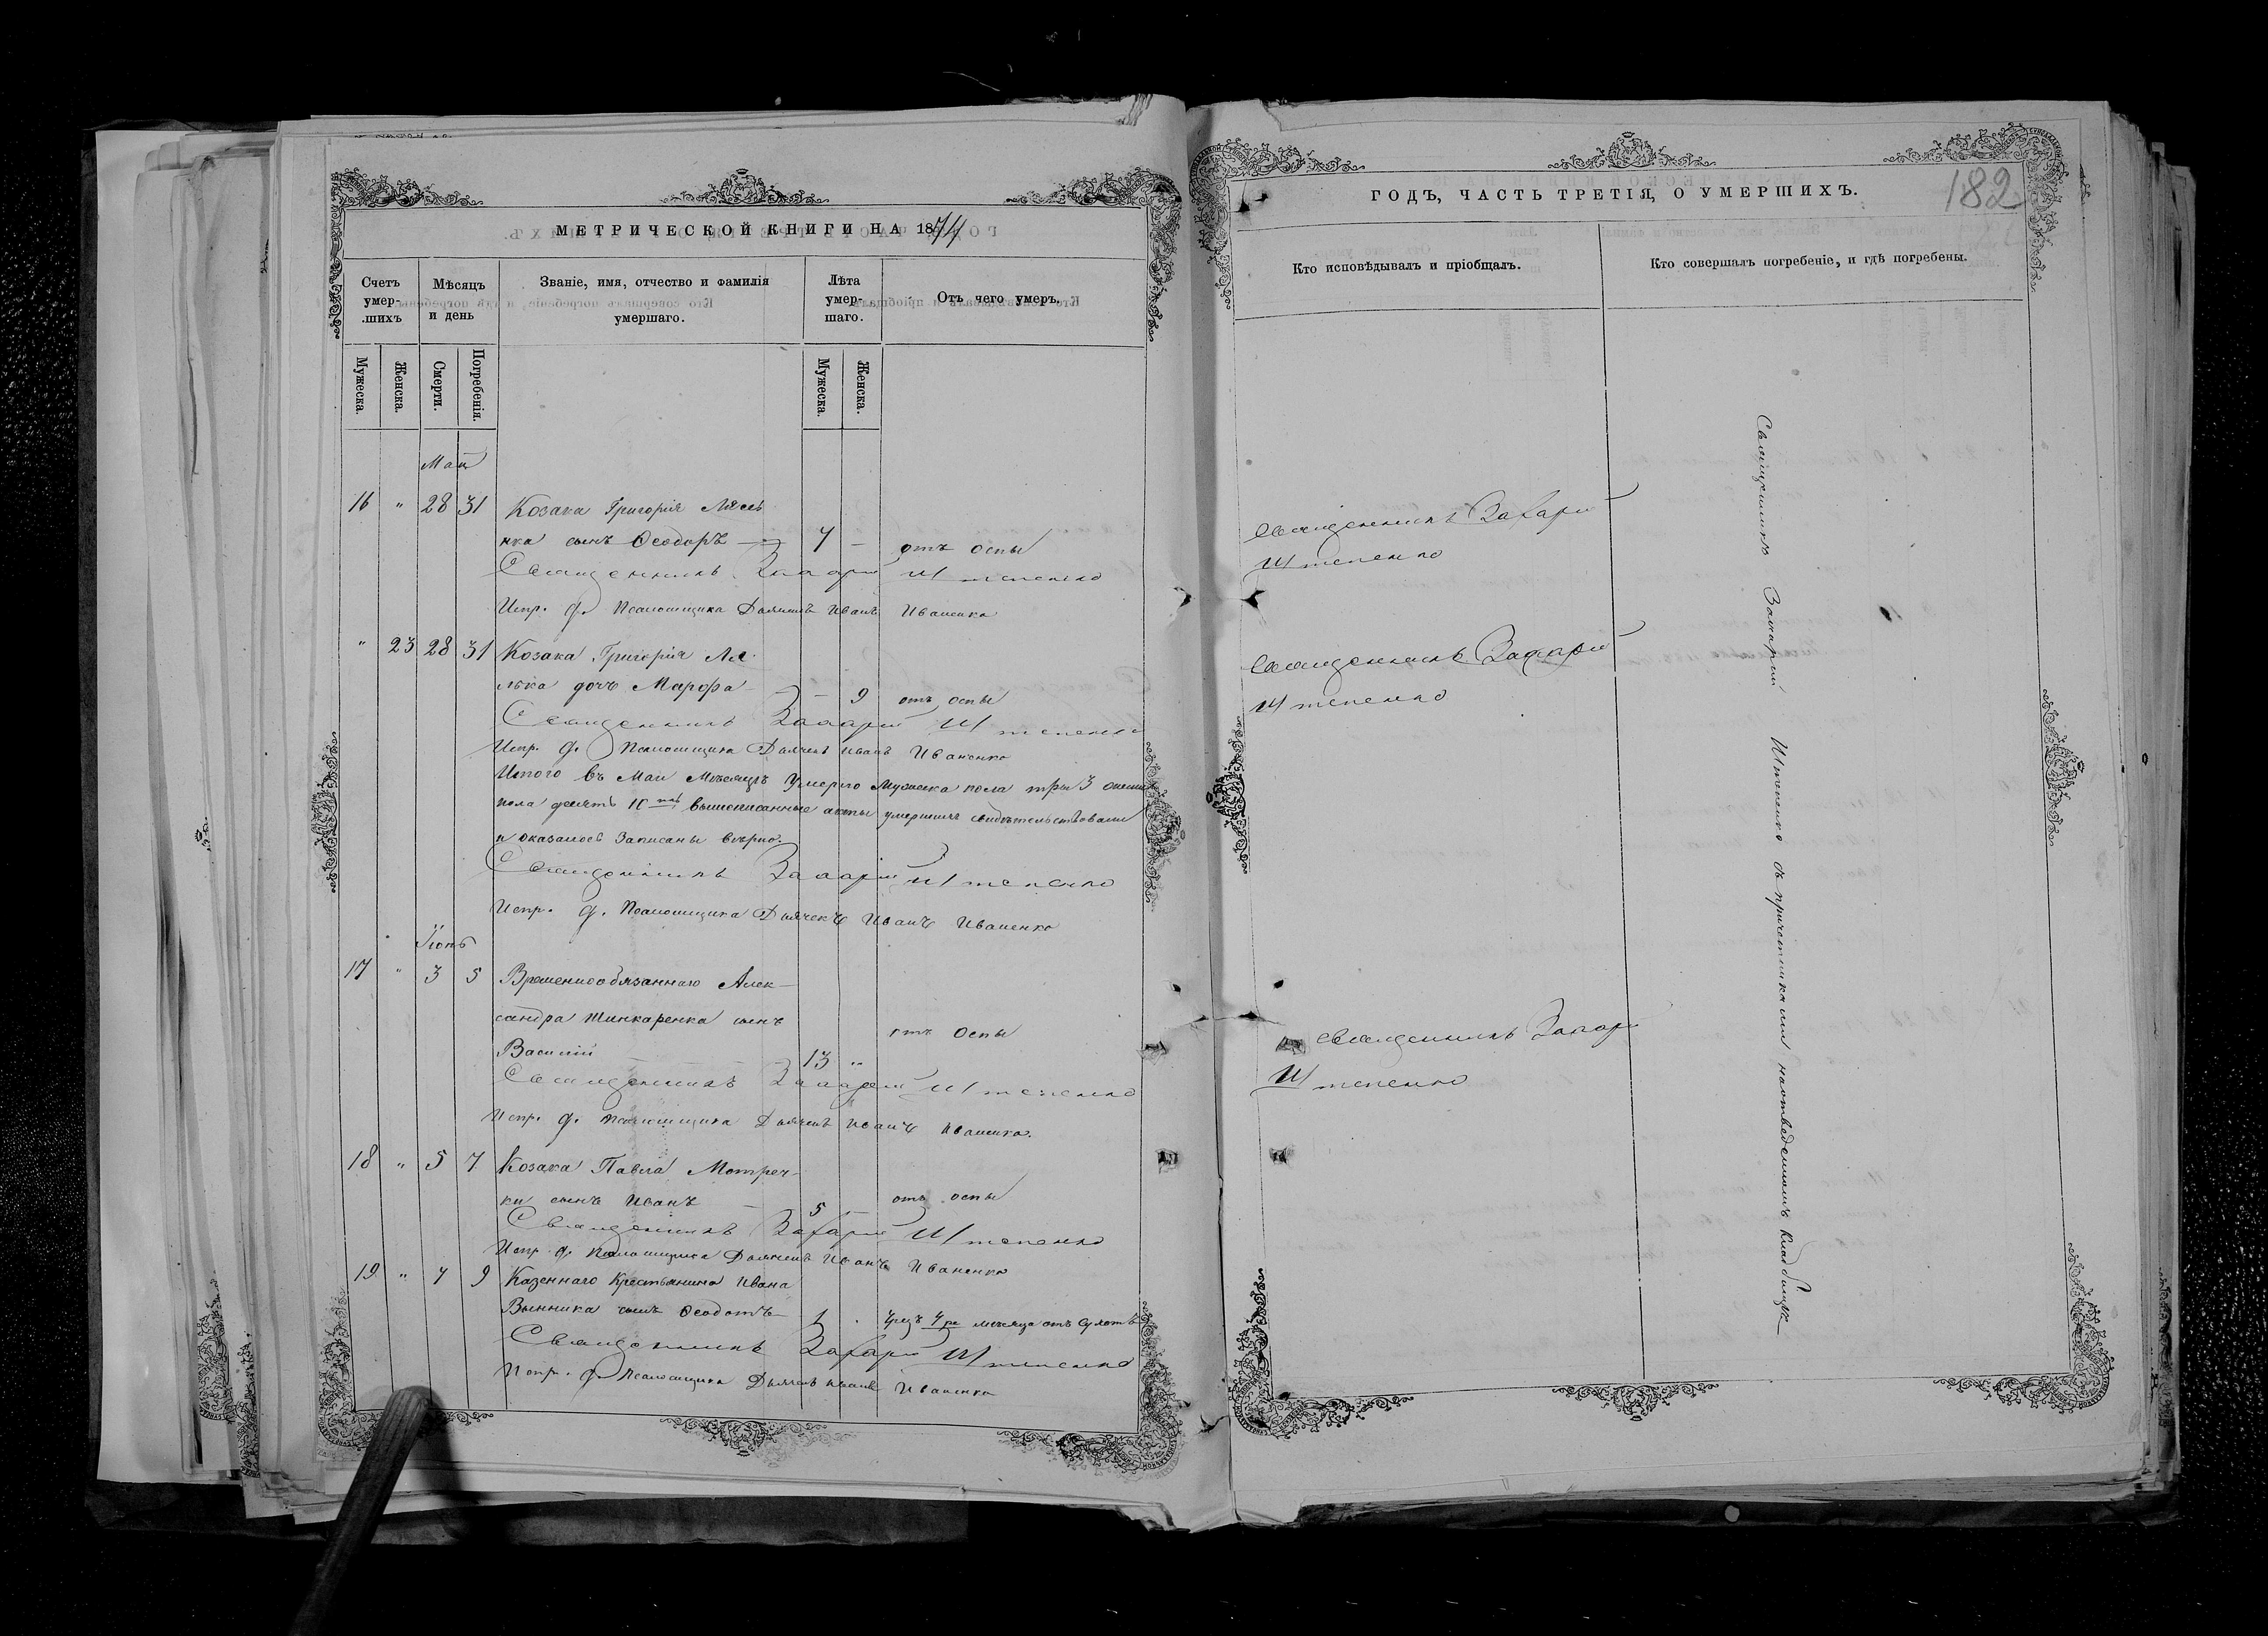 МЕТРИЧЕСКОЙ КНИГИ НА 1874
Счетъ умер-.шихъ
Мѣсяцъ и день
Званіе, имя, отчество и фамилія умершаго.
Лѣта умер-шаго.
Отъ чего умеръ.
Мужеска.
Женска.
Смерти.
Погребенія.
Мужеска.
Женска.
Май
16 " 28 31 Козака Григорія
нка сынъ Ѳеодоръ — 7 — отъ оспы
Священникъ Захарій Штепенко
Испр. д. Псаломщика Дьячекъ Иванъ Иваненко
" 23 28 31 Козака Григорія Ля
лька дочь Марѳа — — 9 отъ оспы
Священникъ Захарій Штепенко
Испр. д. Псаломщика Дьячекъ Иванъ Иваненко
Итого въ Маи Мѣсяцѣ умерло Мужеска пола три 3 женска
пола десять 10 вышеписанные акты умершихъ свидѣтельствовали
и оказалось Записаны вѣрно.
Священникъ Захарій Штепенко
Испр. д. Псаломщика Дьячекъ Иванъ Иваненко
Іюнь
17 " 3 5 Временнообязаннаго Алек-
сандра Шинкаренка сынъ
отъ оспы
Василій — 13 "
Священникъ Захарій Штепенко
Испр. д. Псаломщика Дьячекъ Иванъ Иваненко.
18 " 5 7 Козака Павла Мотреч-
ки сынъ Иванъ — 5 - отъ оспы
Священникъ Захарій Штепенко
Испр. д. Псаломщика Дьячекъ Иванъ Иваненко
19 " 7 9 Казеннаго Крестьянина Ивана
Винника сынъ Ѳеодотъ — 1 . мѣсяца отъ сухотъ
Священникъ Захарій Штепенко
Испр. д. Псаломщика Дьячекъ Иванъ Иваненко
ГОДЪ, ЧАСТЬ ТРЕТІЯ, О УМЕРШИХЪ.
182
Кто исповѣдывалъ и пріобщалъ.
Кто совершалъ погребеніе, и гдѣ погребены.
Священникъ Захарій
Штепенко
Священникъ Захарій
Штепенко
Священникъ Захарій
Штепенко
Священникъ Захарій Штепенко съ причетниками на отведенномъ кладбищѣ